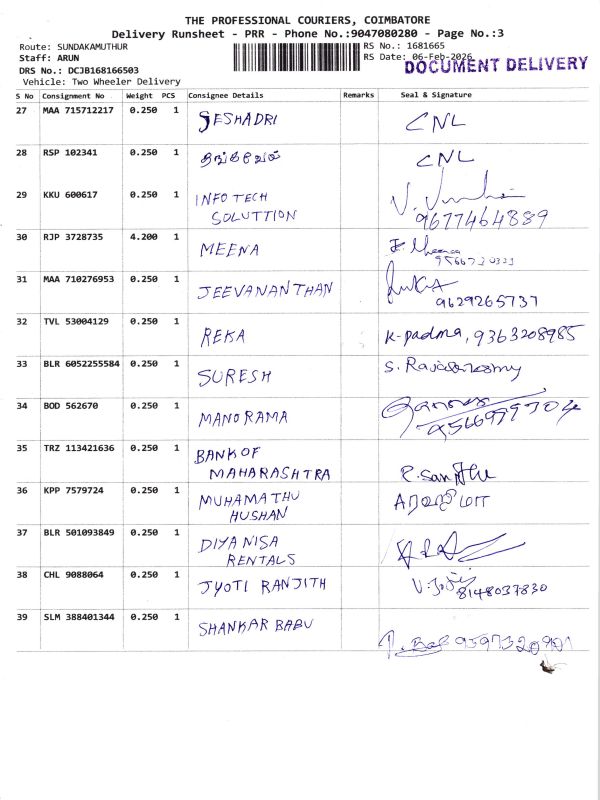 THE PROFESSIONAL COURIERS, COIMBATORE
Delivery Runsheet - PRR - Phone No.:9047080280 - Page No.:3
Route: SUNDAKAMUTHUR
RS No.: 1681665
Staff: ARUN
RS Date: 06-Feb-2026
DOCUMENT DELIVERY
DRS No.: DCJB168166503
Vehicle: Two Wheeler Delivery
S No Consignment No Weight PCS Consignee Details Remarks Seal & Signature
27 MAA 715712217 0.250 1 SESHADRI CNL
28 RSP 102341 0.250 1 தங்கவேல் CNL
29 KKU 600617 0.250 1 INFO TECH
SOLUTTION 9677464889
30 RJP 3728735 4.200 1 MEENA
31 MAA 710276953 0.250 1 JEEVANANTHAN
9629265737
32 TVL 53004129 0.250 1 REKA K-Padma, 9363208985
33 BLR 6052255584 0.250 1 SURESH
34 BOD 562670 0.250 1 MANORAMA
35 TRZ 113421636 0.250 1 BANK OF
MAHARASHTRA
36 KPP 7579724 0.250 1 MUHAMATHU
HUSHAN
37 BLR 501093849 0.250 1 DIYA NISA
RENTALS
38 CHL 9088064 0.250 1 JYOTI RANJITH
8148037830
39 SLM 388401344 0.250 1 SHANKAR BABU